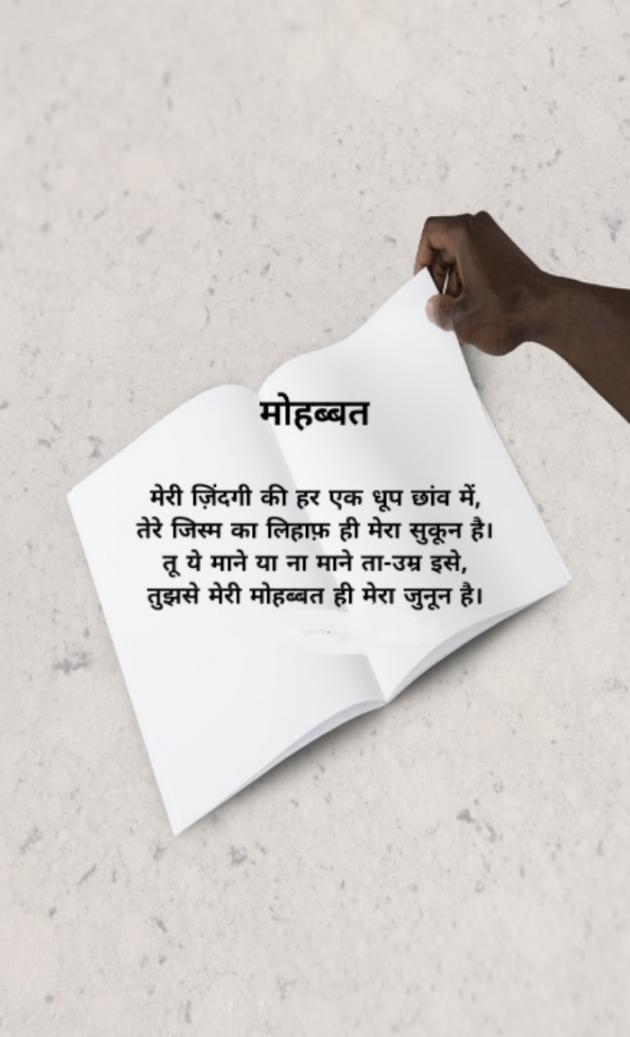 मोहब्बत
मेरी ज़िंदगी की हर एक धूप छांव में,
तेरे जिस्म का लिहाफ़ ही मेरा सुकून है।
तू ये माने या ना माने ता-उम्र इसे,
तुझसे मेरी मोहब्बत ही मेरा जुनून है।